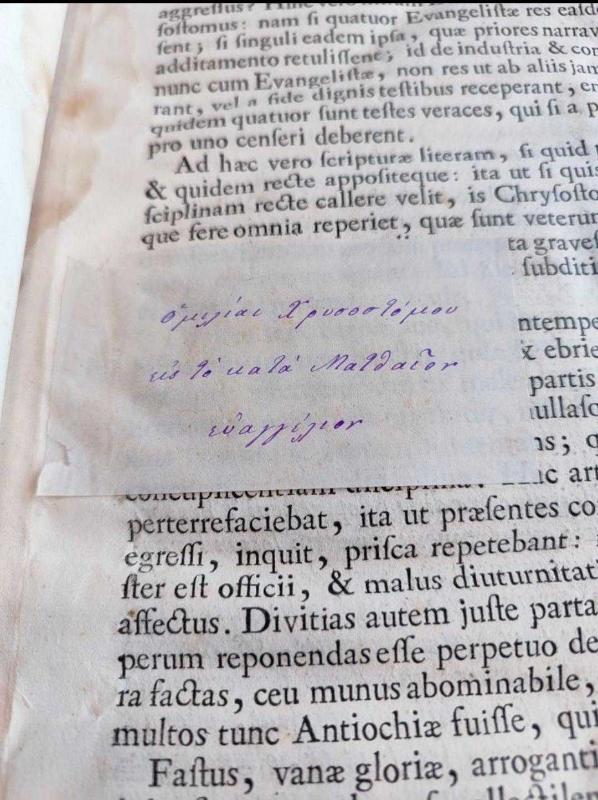 aggreſſus?
ſoſtomus: nam ſi quatuor Evangeliſtæ res eaſd
ſent; ſi ſinguli eadem ipſa, quæ priores narrav
additamento retuliſſent; id de induſtria & con
nunc cum Evangeliſtæ, non res ut ab aliis jam
rant, vel a fide dignis teſtibus receperant, er
quidem quatuor ſunt teſtes veraces, qui ſi a p
pro uno cenſeri deberent.
Ad hæc vero ſcripturæ literam, ſi quid
& quidem recte appoſiteque: ita ut ſi quis
ſciplinam recte callere velit, is Chryſoſto
que fere omnia reperiet, quæ ſunt veterum
ta graveſ
ſubditi
ὁμιλίαι Χρυσοστόμου
εἰς τὸ κατὰ Ματθαῖον
εὐαγγέλιον
ntempe
ebrie
partis
ullaſ
ns; q
Hac art
concupiſcentiam diſciplina.
perterrefaciebat, ita ut præſentes co
egreſſi, inquit, priſca repetebant:
ſter eſt officii, & malus diuturnitat
affectus. Divitias autem juſte parta
perum reponendas eſſe perpetuo de
ra factas, ceu munus abominabile,
multos tunc Antiochiæ fuiſſe, qui
Faſtus, vanæ gloriæ, arroganti